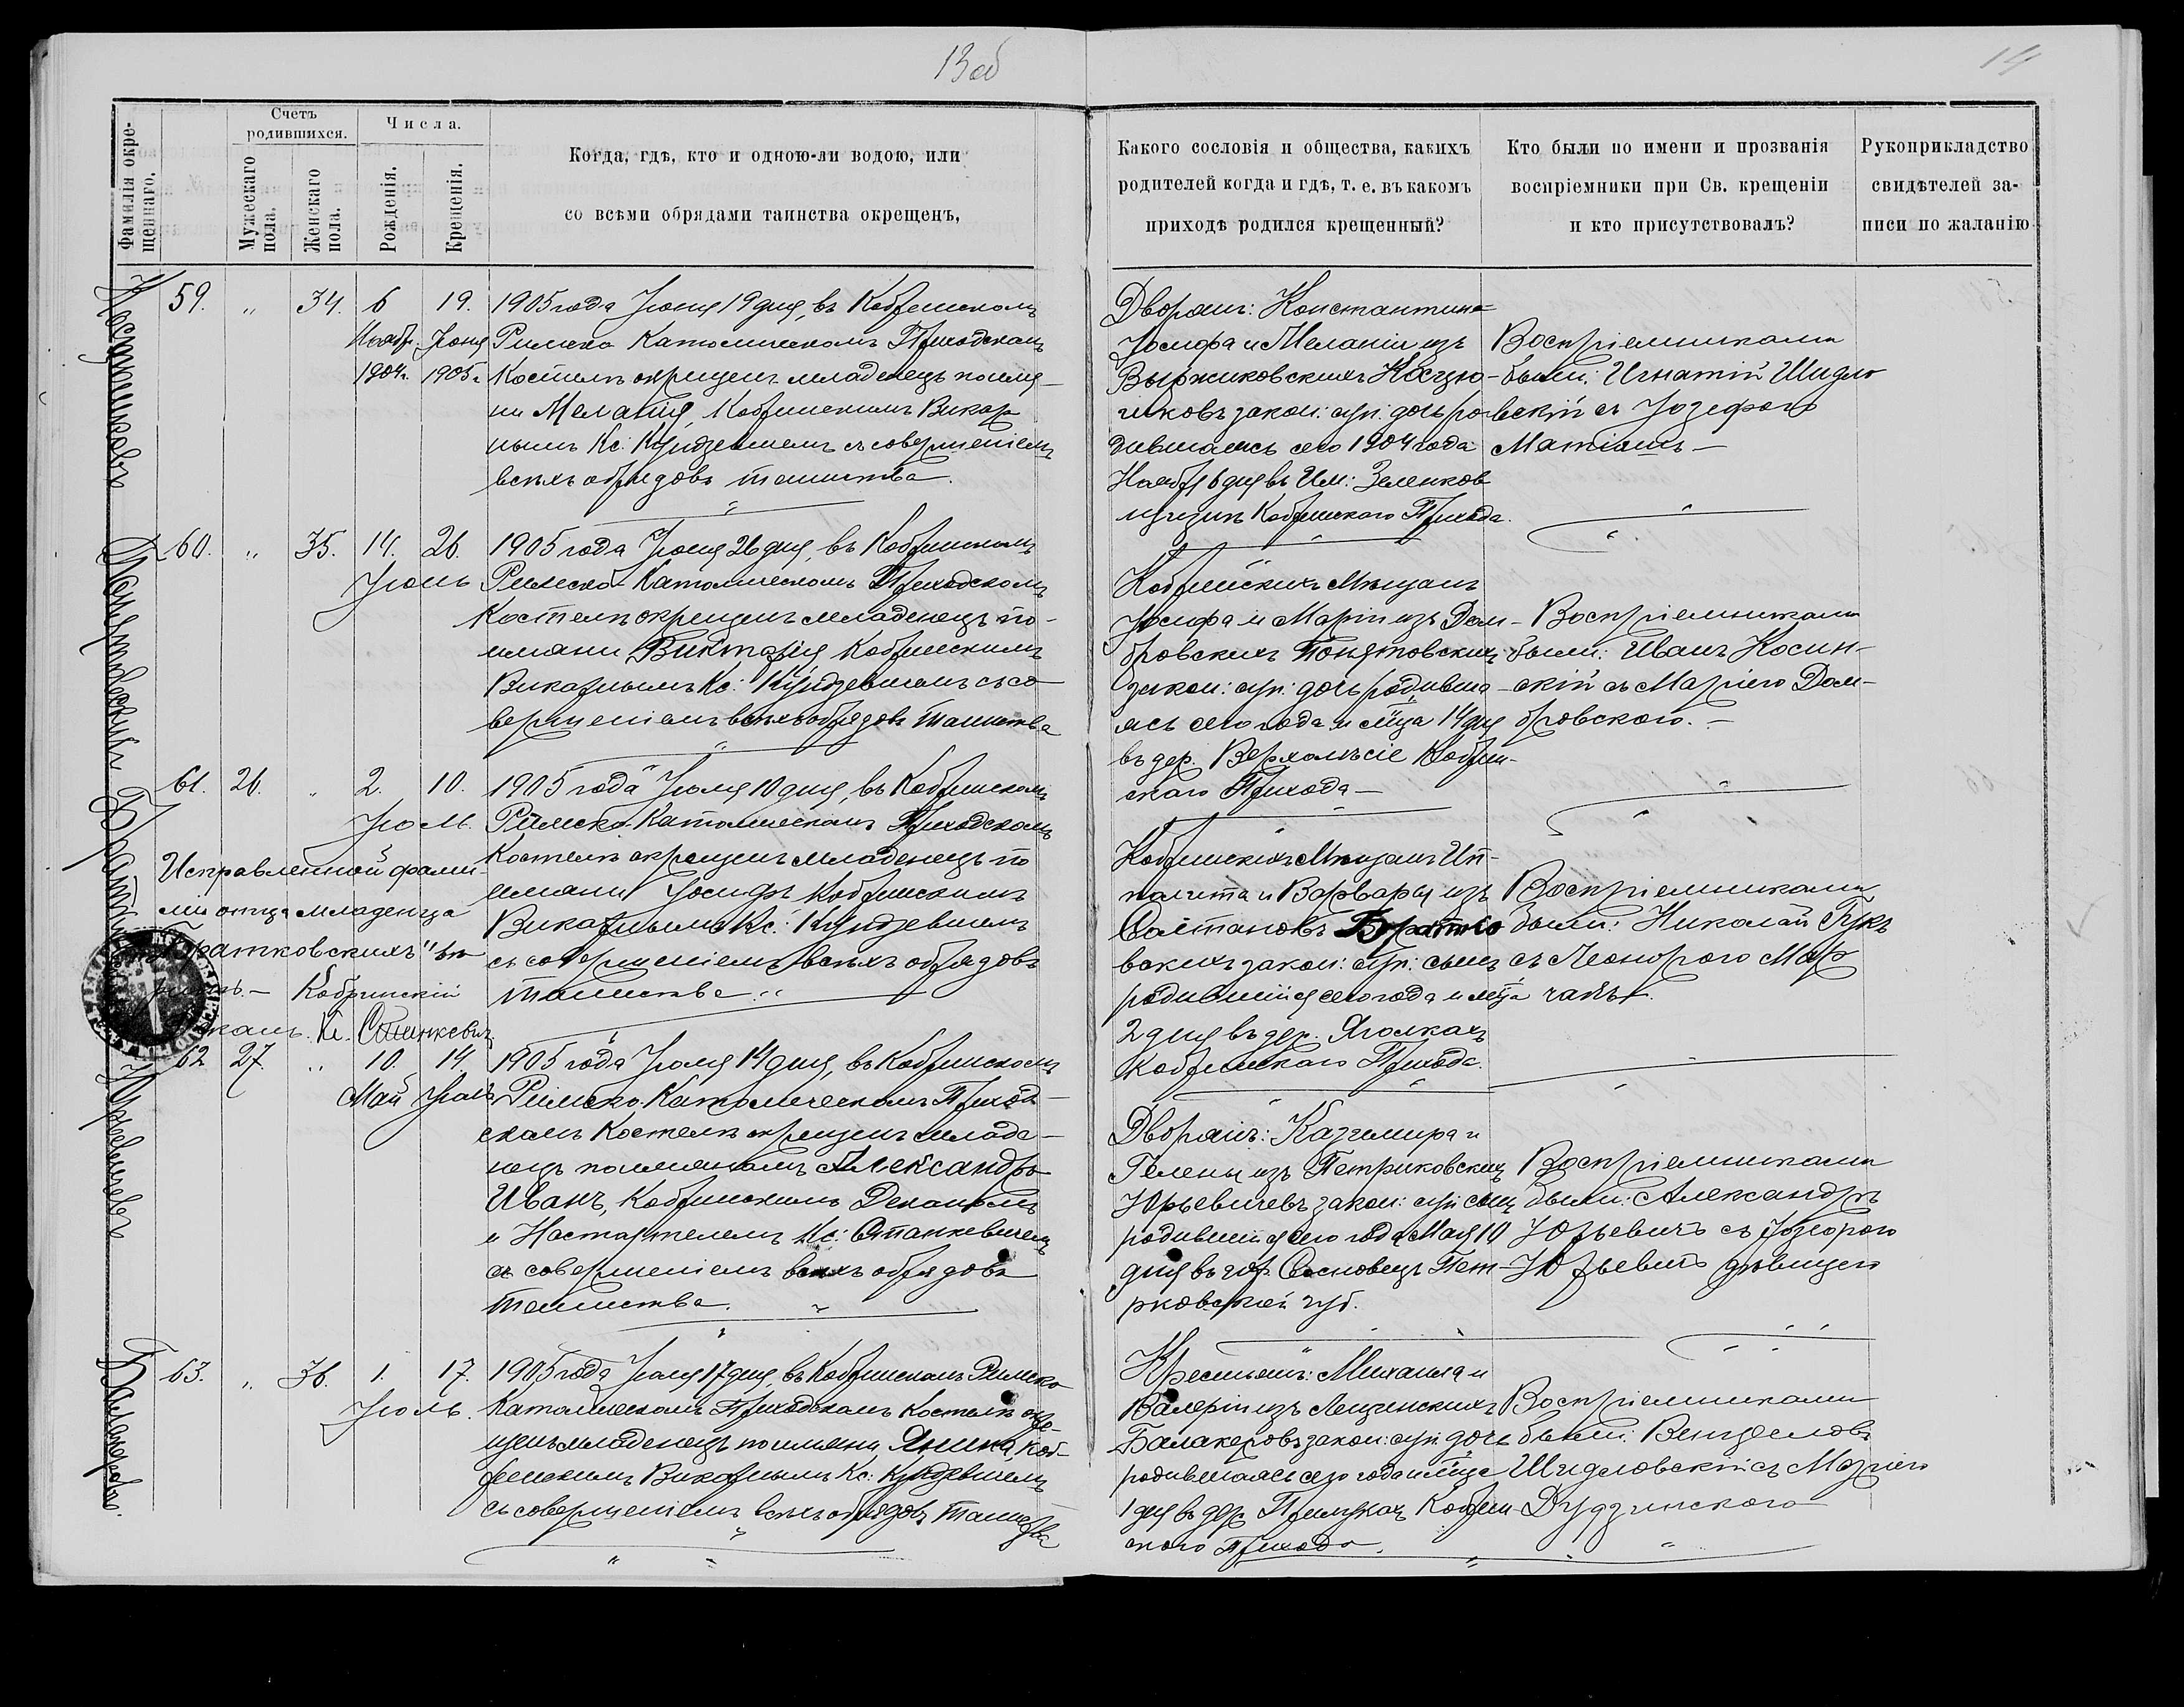 13 об
14
Фамилія окре-
щеннаго.
Счетъ
родившихся.
Мужескаго
пола.
Женскаго
пола.
Числа.
Рожденія.
Крещенія.
Когда, гдѣ, кто и одною-ли водою, или
со всѣми обрядами таинства окрещенъ,
Какого сословія и общества, какихъ
родителей когда и гдѣ, т. е. въ какомъ
приходѣ родился крещенный?
Кто были по имени и прозванія
воспріемники при Св. крещеніи
и кто присутствовалъ?
Рукоприкладство
свидѣтелей за-
писи по жаланію
59. „ 34. 6 19.
Ноябр. Іюня
1904г. 1905г.
1905 года Іюня 19 дня, въ Кобринскомъ
Римско Католическомъ Приходскомъ
Костелѣ окрещенъ младенецъ по име-
ни Меланія, Кобринскимъ Викар
нымъ Кс: Кундзевичемъ съ совершеніемъ
всѣхъ обрядовъ таинства.
Дворянъ: Константина-
Іосифа и Меланіи изъ
Выржиковскихъ Косцю-
шковъ закон: суп: дочь ро-
дившаяся сего 1904 года
Ноября 6 дня въ Им: Зеленков
Кобринскаго Прихода.
Воспріемниками
были: Игнатій Шидло
вскій съ Іозефою
Матіашъ –
60. „ 35. 14. 26.
Іюнь
1905 года Іюня 26 дня, въ Кобринскомъ
Римско-Католическомъ Приходскомъ
Костелѣ окрещенъ младенецъ по-
имени Викторія Кобринскимъ
Викарнымъ Кс: Кундзевичемъ съ со
вершеніемъ всѣхъ обрядовъ таинства
Кобринскихъ Мѣщанъ
Іосифа и Маріи изъ Дом-
бровскихъ Понятовскихъ
закон: суп: дочь родивша-
яся сего года и мѣсца 14 дня
въ дер. Верхолѣсіе Кобрин-
скаго Прихода –
Воспріемниками
были: Иванъ Косин-
скій съ Маріею Дом-
бровскою. –
61. 26. „ 2. 10.
Іюль.
1905 года Іюля 10 дня, въ Кобринскомъ
Римско-Католическомъ Приходскомъ
Костелѣ окрещенъ младенецъ по
имени Іосифъ Кобринскимъ
Викарнымъ Кс: Кундзевичемъ
съ совершеніемъ всѣхъ обрядовъ
таинства.
Исправленной фами-
ліи отца младенца
„Братковскихъ" вѣ
рить. – Кобринскій
Деканъ Кс. Станкевичъ
Кобринскихъ Мѣщанъ Ип-
полита и Варвары изъ
Солтановъ Братко
вскихъ закон: суп: сынъ
родившійся сего года и мѣсца
2 дня въ дер. Яголкахъ
Кобринскаго Прихода.
Воспріемниками
были: Николай Гукъ
съ Леонорою Мар
чакъ.
62 27. „ 10. 14.
Май Іюль
1905 года Іюля 14 дня, въ Кобринскомъ
Римско-Католическомъ Приход-
скомъ Костелѣ окрещенъ младе-
нецъ по именамъ Александръ
Иванъ, Кобринскимъ Деканомъ
и Настоятелемъ Кс: Станкевичемъ
съ совершеніемъ всѣхъ обрядовъ
таинства.
Дворянъ: Казимира и
Гелены изъ Петриковскихъ
Юрьевичевъ закон: суп: сынъ
родившійся сего года Мая 10
дня въ гор. Сосновецъ Пет-
рковской губ.
Воспріемниками
были: Александръ
Юрьевичъ съ Ізидорою
Юрьевичъ дѣвицею
63. „ 36. 1. 17.
Іюль.
1905 года Іюля 17 дня, въ Кобринскомъ Римско
Католическомъ Приходскомъ Костелѣ окре-
щенъ младенецъ по имени Янина, Коб-
ринскимъ Викарнымъ Кс: Кундзевичемъ
съ совершеніемъ всѣхъ обрядовъ таинства
Крестьянъ: Михаила и
Валеріи изъ Лещинскихъ
Балакеровъ закон: суп: дочь
родившаяся сего года и мѣсца
1 дня въ дер. Прилукахъ Кобрин-
скаго Прихода.
Воспріемниками
были: Венцеславъ
Шидловскій съ Маріею
Вудзинскою
Косцюшковъ
Понятовскихъ
Юрьевичевъ
Балакеровъ.